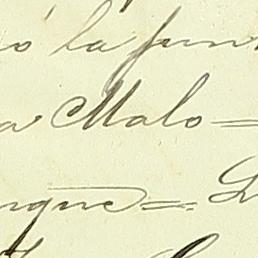 ó la fun
a Malo=
nque=